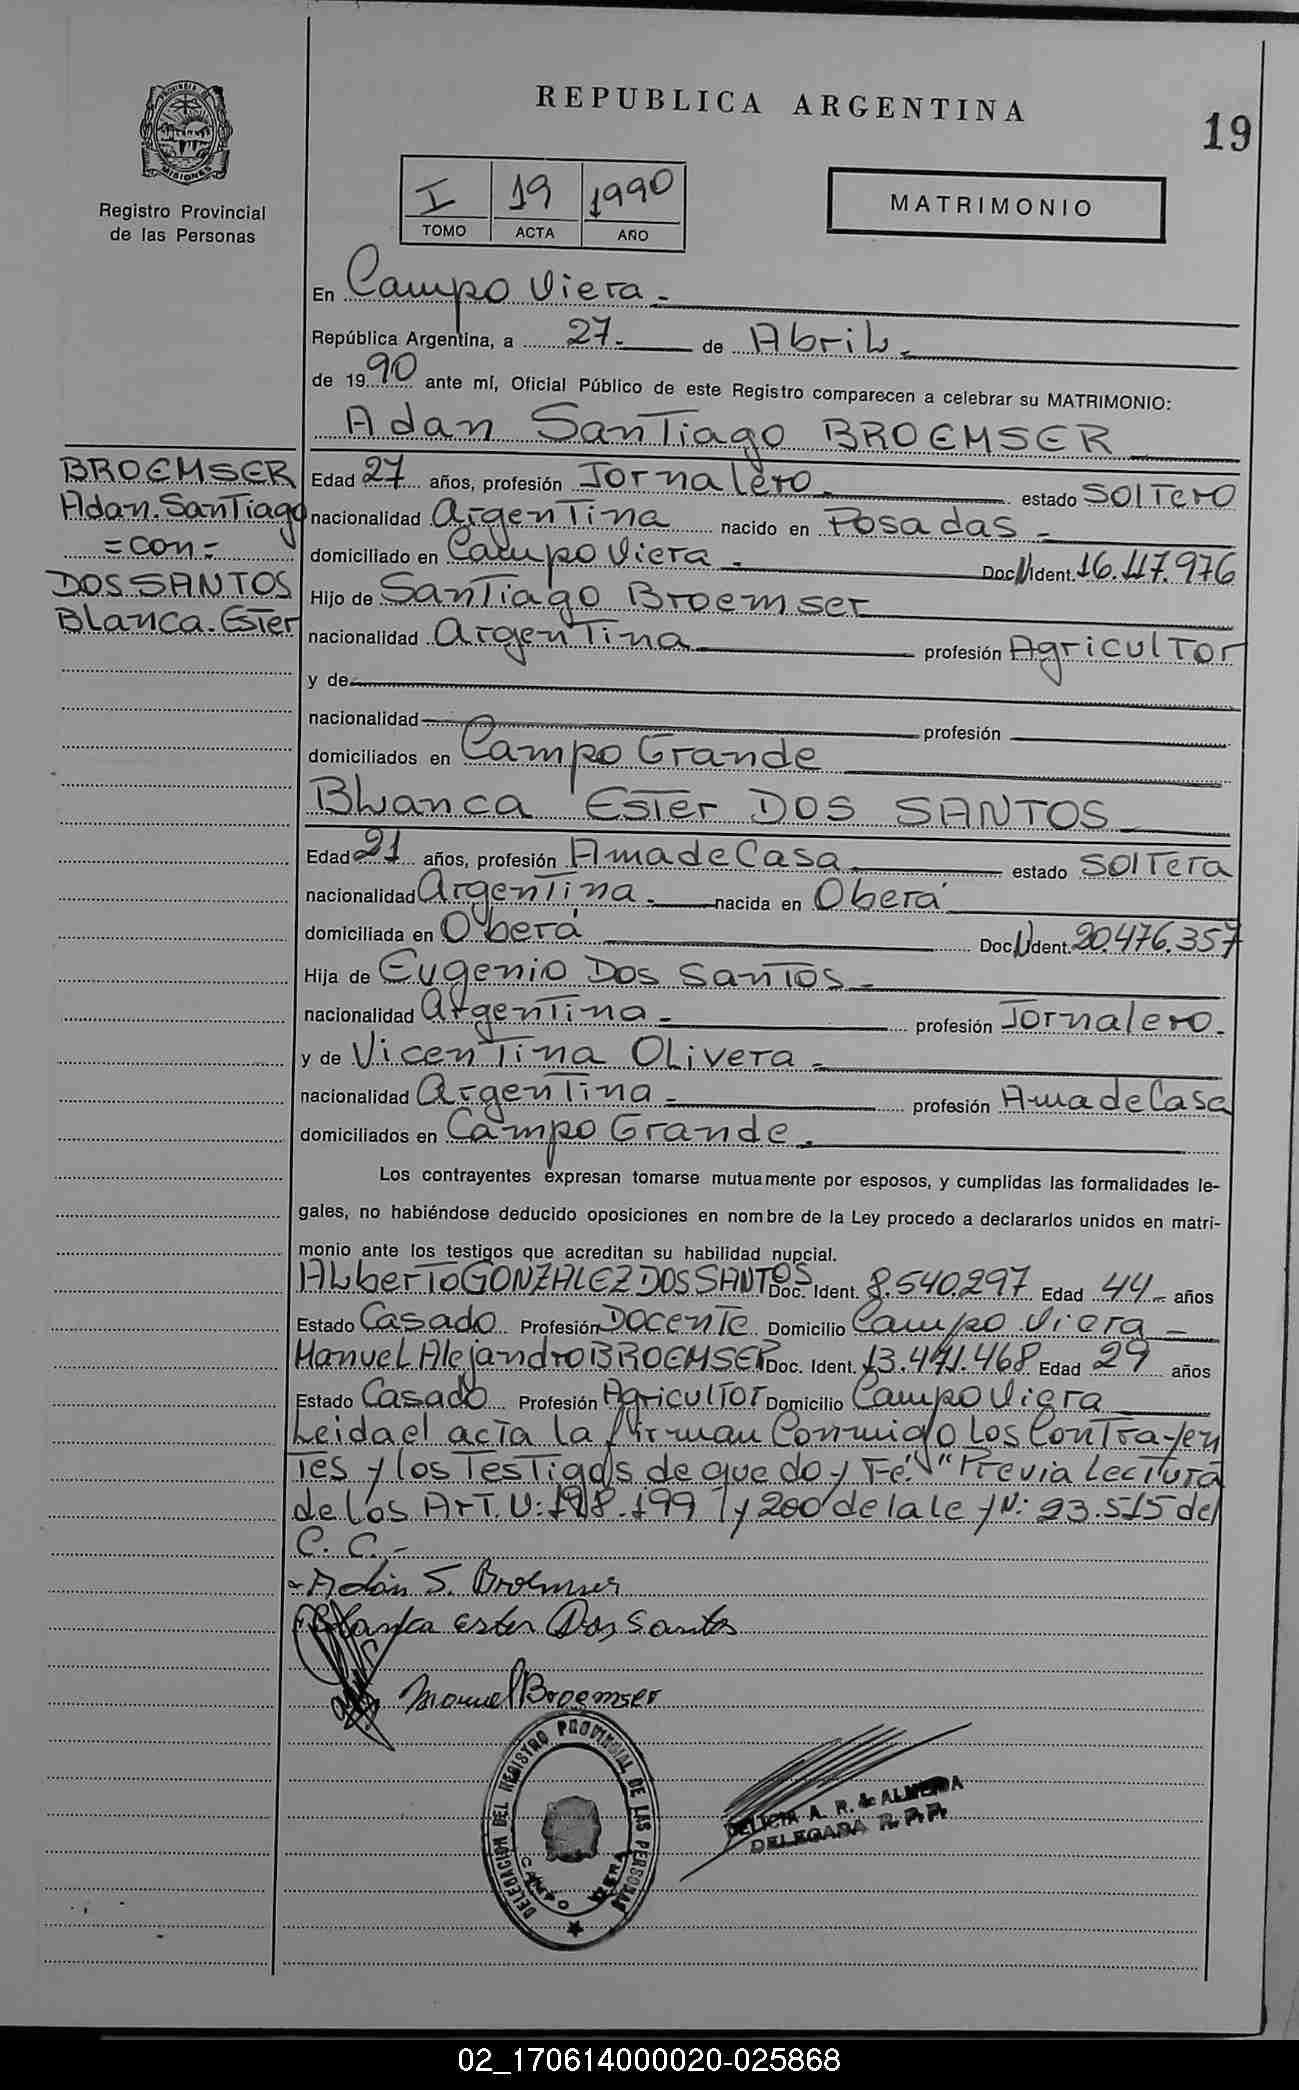 REPUBLICA ARGENTINA
19
MISIONES
Registro Provincial
de las Personas
I 19 1990
TOMO ACTA AÑO
MATRIMONIO
En Campo Viera.-
República Argentina, a 27.- de Abril.-
de 1990 ante mí, Oficial Público de este Registro comparecen a celebrar su MATRIMONIO:
Adan Santiago BROEMSER
BROEMSER
Adan.Santiago
=con=
DOS SANTOS
Blanca.Ester
Edad 27 años, profesión Jornalero.- estado Soltero
nacionalidad Argentina nacido en Posadas.-
domiciliado en Campo Viera.- Doc N Ident. 16.117.976
Hijo de Santiago Broemser
nacionalidad Argentina profesión Agricultor
y de
nacionalidad profesión
domiciliados en Campo Grande
Blanca Ester DOS SANTOS
Edad 21 años, profesión Ama de Casa.- estado Soltera
nacionalidad Argentina.- nacida en Oberá
domiciliada en Oberá Doc N Ident. 20.476.357
Hija de Eugenio Dos Santos.-
nacionalidad Argentina.- profesión Jornalero.-
y de Vicentina Olivera.-
nacionalidad Argentina.- profesión Ama de Casa
domiciliados en Campo Grande.-
Los contrayentes expresan tomarse mutuamente por esposos, y cumplidas las formalidades le-
gales, no habiéndose deducido oposiciones en nombre de la Ley procedo a declararlos unidos en matri-
monio ante los testigos que acreditan su habilidad nupcial.
Alberto GONZALEZ DOS SANTOS Doc. Ident. 8.540.297 Edad 44 años
Estado Casado Profesión Docente Domicilio Campo Viera-
Manuel Alejandro BROEMSER Doc. Ident. Edad 29 años
Estado Casado Profesión Agricultor Domicilio Campo Viera
Leida el acta la firman Conmigo los Contrayen
tes y los Testigos de que doy Fé. "Previa Lectura
de los Art. N: 198.199 y 200 de la ley N: 23.515 del
C. C.-
Adán S. Broemser
Blanca ester Dos Santos
Manuel Broemser
DELEGACION DEL REGISTRO PROVINCIAL DE LAS PERSONAS
CAMPO VIERA
DELICIA A. R. de ALMEIDA
DELEGADA R. P. P.
02_170614000020-025868